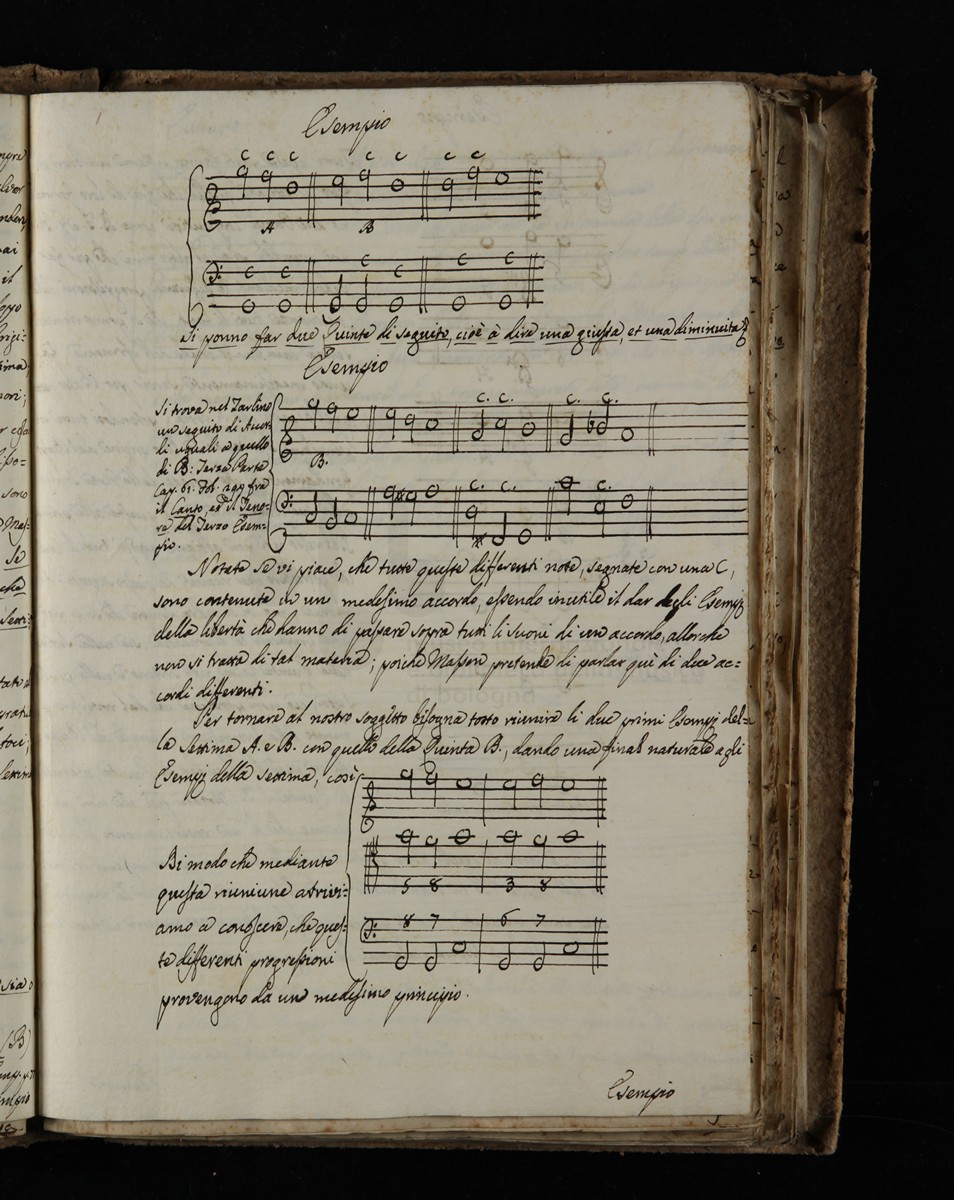 Esempio
C C C C C C C
A B
C C C C C C
Si ponno far due Quinte di seguito, cioè à dire una giusta, et una diminuita
Esempio
Si trova nel Zarlino
un seguito di Accor
di uguali a quello
di B: Terza Parte
Cap. 61. fra
il Canto, ed il Teno-
re del Terzo Esem-
pio.
C. C. C. C.
B.
C. C. C.
Notate se vi piace, che tutte queste differenti note, segnate con una C,
sono contenute in un medesimo accordo, essendo inutile il dar degli Esempj
della libertà che danno di passare sopra tutti li suoni di un accordo, allorche
non si tratta di tal materia; poiche Masson pretende di parlar quì di due ac=
cordi differenti.
Per tornare al nostro soggetto bisogna tosto riunire li due primi Esempj del=
la Settima A. e B. con quello della Quinta B., dando una final naturale agli
Esempj della settima, così
Di modo che mediante
questa riunione arrivi-
amo a conoscere, che ques-
te differenti progressioni
provengono da un medesimo principio.
5 8 3 8
8 7 6 7
Esempio